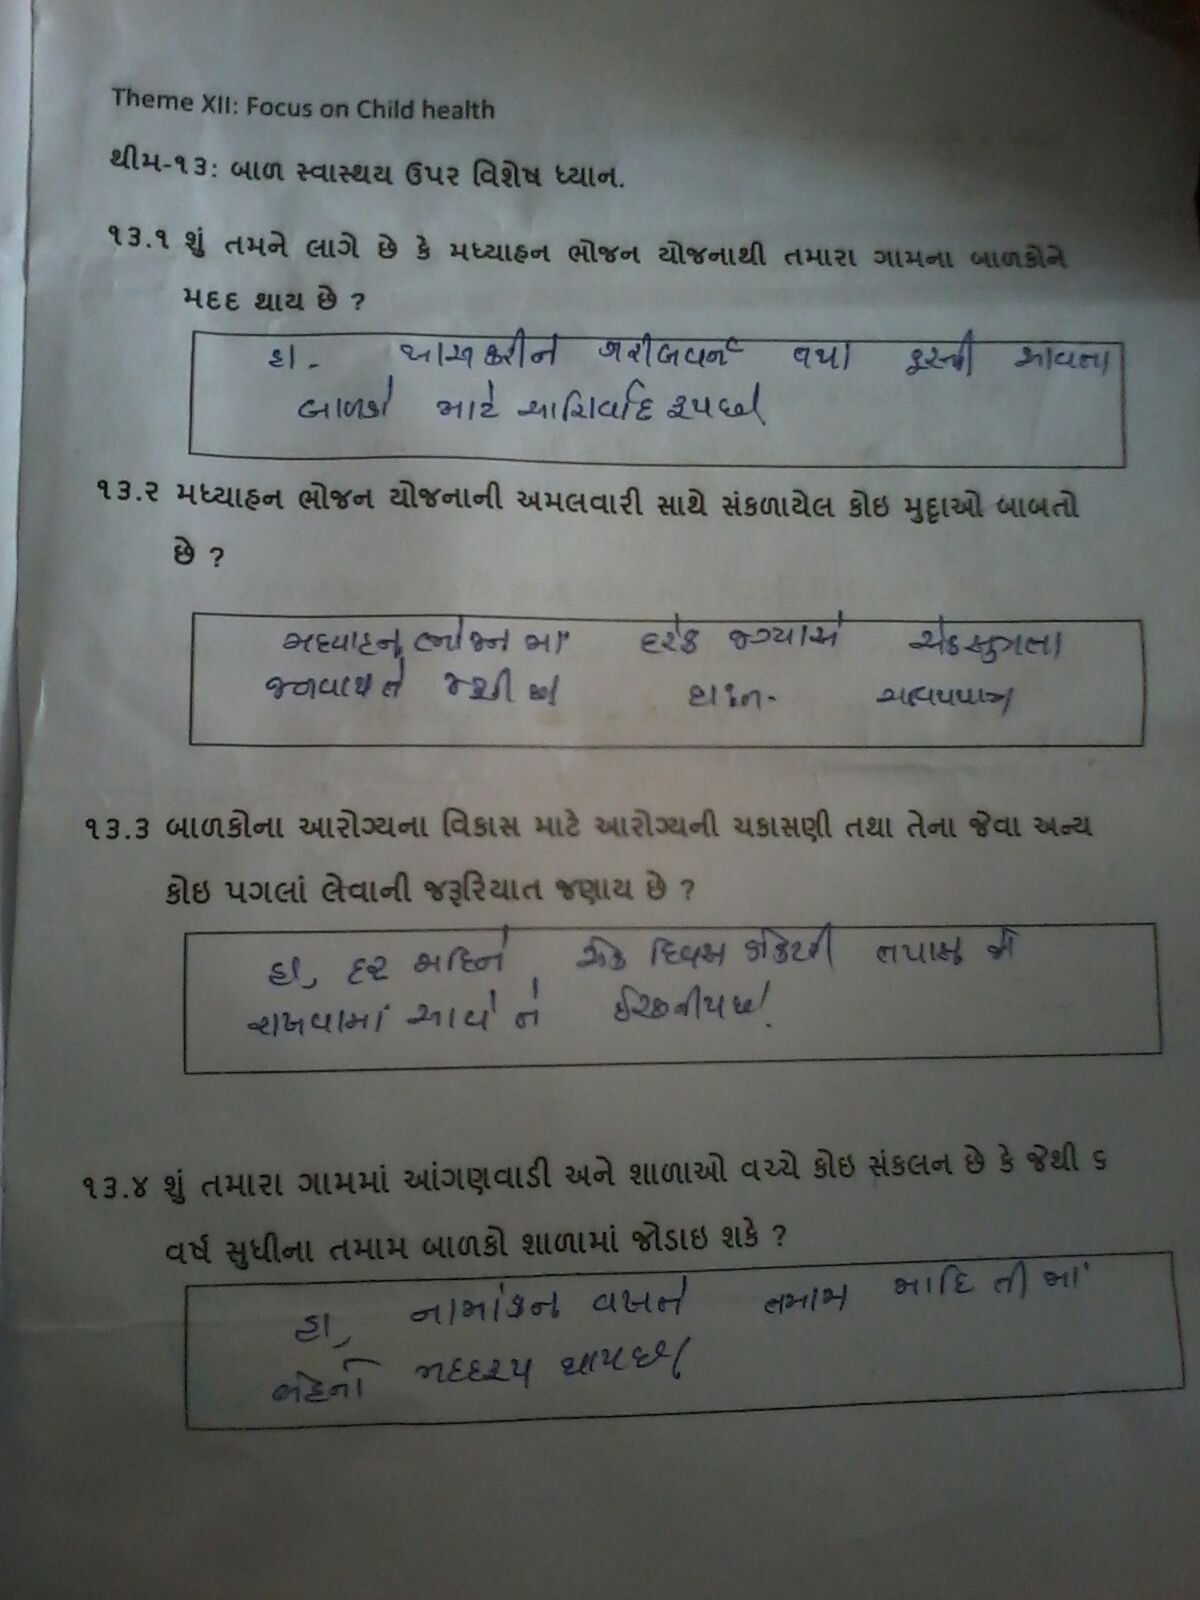 Theme XII: Focus on Child health
થીમ-૧૩: બાળ સ્વાસ્થય ઉપર વિશેષ ધ્યાન.
૧૩.૧ શું તમને લાગે છે કે મધ્યાહન ભોજન યોજનાથી તમારા ગામના બાળકોને
મદદ થાય છે ?
હા. ખાસ કરીને ગરીબવર્ગ તથા દુરથી આવતા
બાળકો માટે આશિર્વાદ રૂપ છે.
૧૩.૨ મધ્યાહન ભોજન યોજનાની અમલવારી સાથે સંકળાયેલ કોઇ મુદ્દાઓ બાબતો
છે ?
મધ્યાહન ભોજન માં દરેક જગ્યાએ એકસુત્રતા
જળવાય તે જરૂરી છે
૧૩.૩ બાળકોના આરોગ્યના વિકાસ માટે આરોગ્યની ચકાસણી તથા તેના જેવા અન્ય
કોઇ પગલાં લેવાની જરૂરિયાત જણાય છે ?
હા, દર મહિને એક દિવસ ડોકટરી તપાસ
રાખવામાં આવે તે ઈચ્છનીય છે.
૧૩.૪ શું તમારા ગામમાં આંગણવાડી અને શાળાઓ વચ્ચે કોઇ સંકલન છે કે જેથી ૬
વર્ષ સુધીના તમામ બાળકો શાળામાં જોડાઇ શકે ?
હા, નામાંકન વખતે તમામ માહિતીમાં
મદદરૂપ થાય છે.